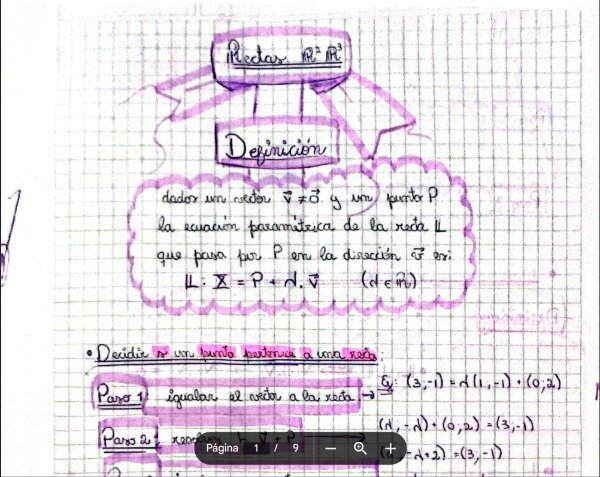 Rectas ℝ² ℝ³
Definición
dados un vector v⃗ ≠ 0⃗ y un punto P
la ecuación paramétrica de la recta 𝕃
que pasa por P en la dirección v⃗ es:
𝕃: 𝕏 = P + λ. v⃗ (λ ∈ ℝ)
• Decidir si un punto pertence a una recta:
Paso 1: igualar el vector a la recta → Ej: (3,-1) = λ(1,-1) + (0,2)
(λ, -λ) + (0,2) = (3,-1)
Paso 2:
(λ, -λ+2) = (3,-1)
Página 1 / 9